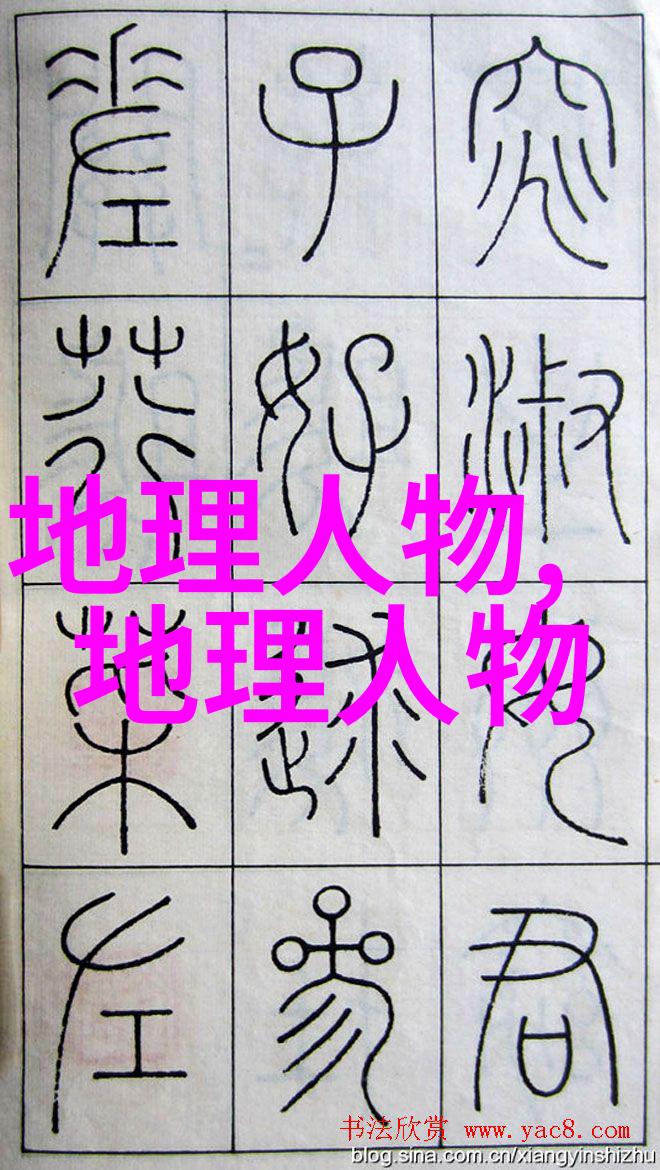 窕淑女君
子好逑参
差荇菜左
地理人物,
地理人物
书法欣赏 www.yac8.com
blog.sina.com.cn/xiangyinshizhu